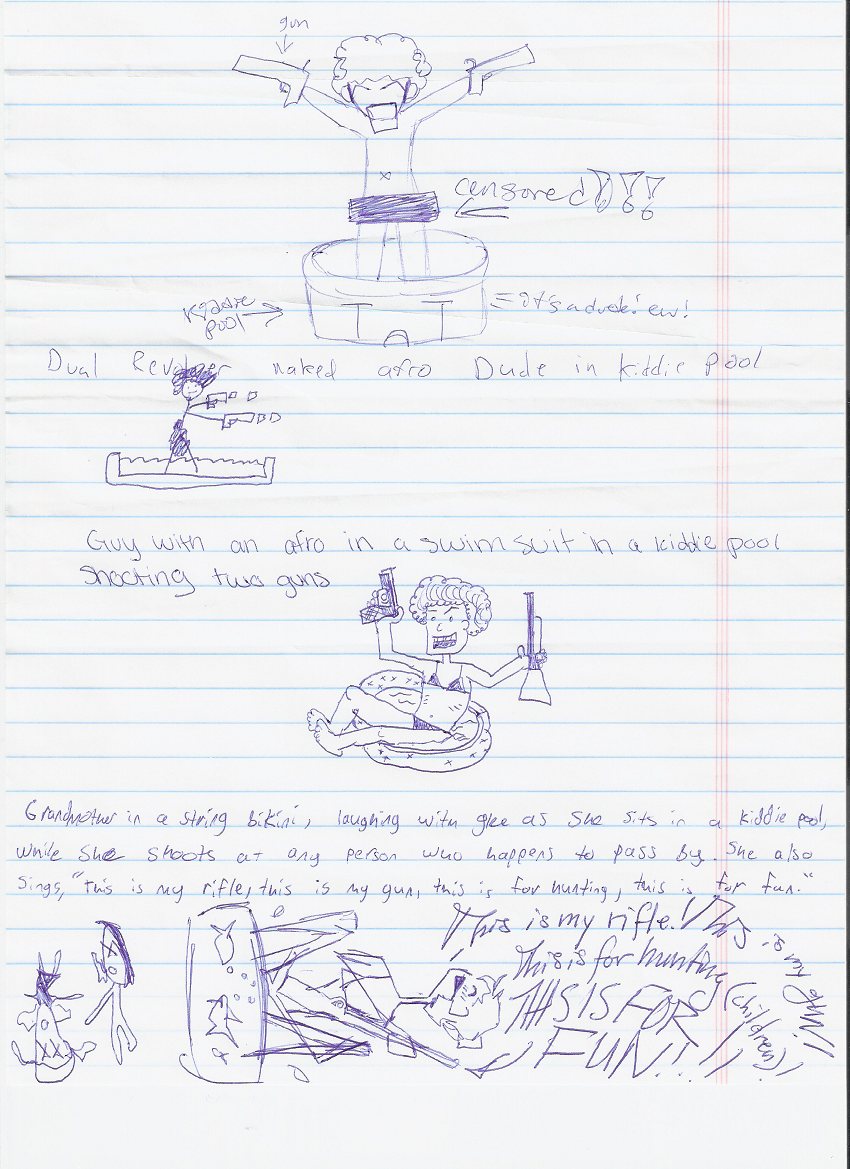 gun
censored!!!
Kiddie
pool
= it's a duck! ew!
Dual Revolver naked afro Dude in kiddie pool
Guy with an afro in a swimsuit in a kiddie pool
shooting two guns
Grandmother in a string bikini, laughing with glee as she sits in a kiddie pool,
while she shoots at any person who happens to pass by. She also
sings, "this is my rifle, this is my gun, this is for hunting, this is for fun."
This is my rifle! This is my gun!!
This is for hunting
(children)!
THIS IS FOR
FUN!!!